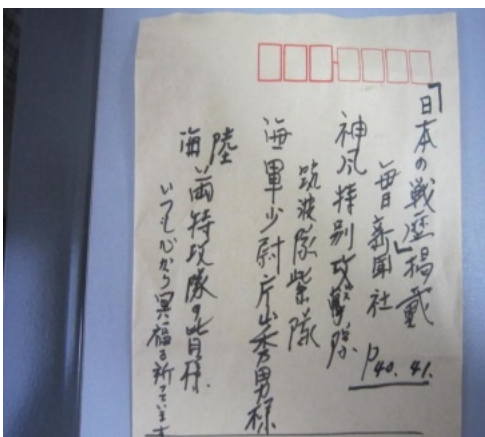 「日本の戦歴」掲載
毎日新聞社 P40.41.
神風特別攻撃隊
筑波隊紫隊
海軍少尉片山秀男様
陸
海両特攻隊の皆様.
いつも心から冥福を祈っています